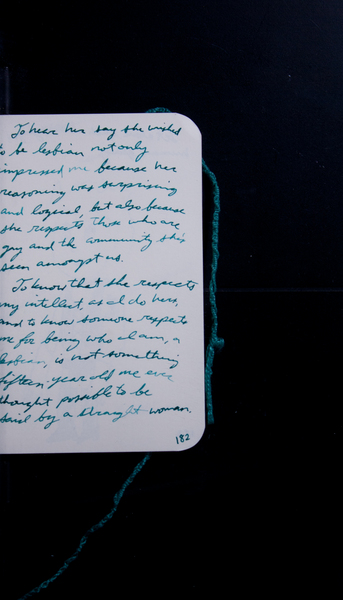 To hear her say she wished
to be lesbian not only
impressed me because her
reasoning was surprising
and logical, but also because
she respects those who are
gay and the community she's
seen amongst us.
To know that she respects
my intellect, as I do hers,
and to know someone respects
me for being who I am, a
lesbian, is not something
fifteen-year old me ever
thought possible to be
said by a straight woman.
182